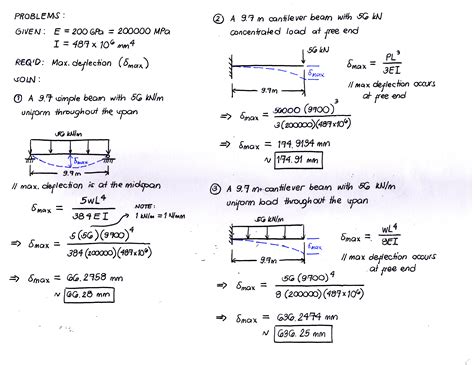 PROBLEMS:
GIVEN: E = 200 GPa = 200000 MPa
I = 487 x 10⁶ mm⁴
REQ'D: Max. deflection (δmax)
SOLN:
① A 9.7 simple beam with 56 kN/m
uniform throughout the span
56 kN/m
δmax
9.7m
// max. deflection is at the midspan
δmax = 5wL⁴ / 384EI
NOTE:
1 kN/m = 1 N/mm
⇒ δmax = 5(56)(9700)⁴ / 384(200000)(487x10⁶)
⇒ δmax = 66.2758 mm
≈ 66.28 mm
② A 9.7 m cantilever beam with 56 kN
concentrated load at free end
56 kN
δmax
9.7m
δmax = PL³ / 3EI
// max deflection occurs
at free end
⇒ δmax = 56000(9700)³ / 3(200000)(487x10⁶)
⇒ δmax = 174.9134 mm
≈ 174.91 mm
③ A 9.7 m cantilever beam with 56 kN/m
uniform load throughout the span
56 kN/m
δmax
9.7m
δmax = wL⁴ / 8EI
// max deflection occurs
at free end
⇒ δmax = 56(9700)⁴ / 8(200000)(487x10⁶)
⇒ δmax = 636.2474 mm
≈ 636.25 mm